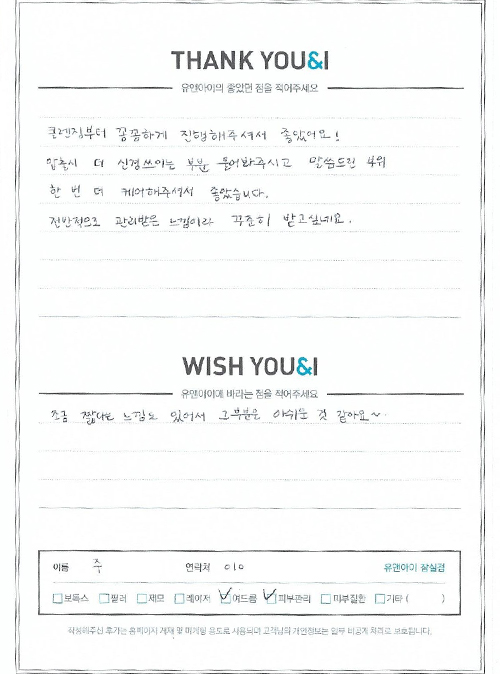 THANK YOU&I
유앤아이의 좋았던 점을 적어주세요
클렌징부터 꼼꼼하게 진행해주셔서 좋았어요!
압출시 더 신경쓰이는 부분 물어봐주시고 말씀드린 부위
한 번 더 케어해주셔서 좋았습니다.
전반적으로 관리받은 느낌이라 꾸준히 받고싶네요.
WISH YOU&I
유앤아이에 바라는 점을 적어주세요
조금 짧다는 느낌도 있어서 그부분은 아쉬운 것 같아요~
이름 주 연락처 010 유앤아이 잠실점
보톡스 필러 제모 레이저 여드름 피부관리 피부질환 기타 ( )
작성해주신 후기는 홈페이지 게재 및 마케팅 용도로 사용되며 고객님의 개인정보는 일부 비공개 처리로 보호됩니다.